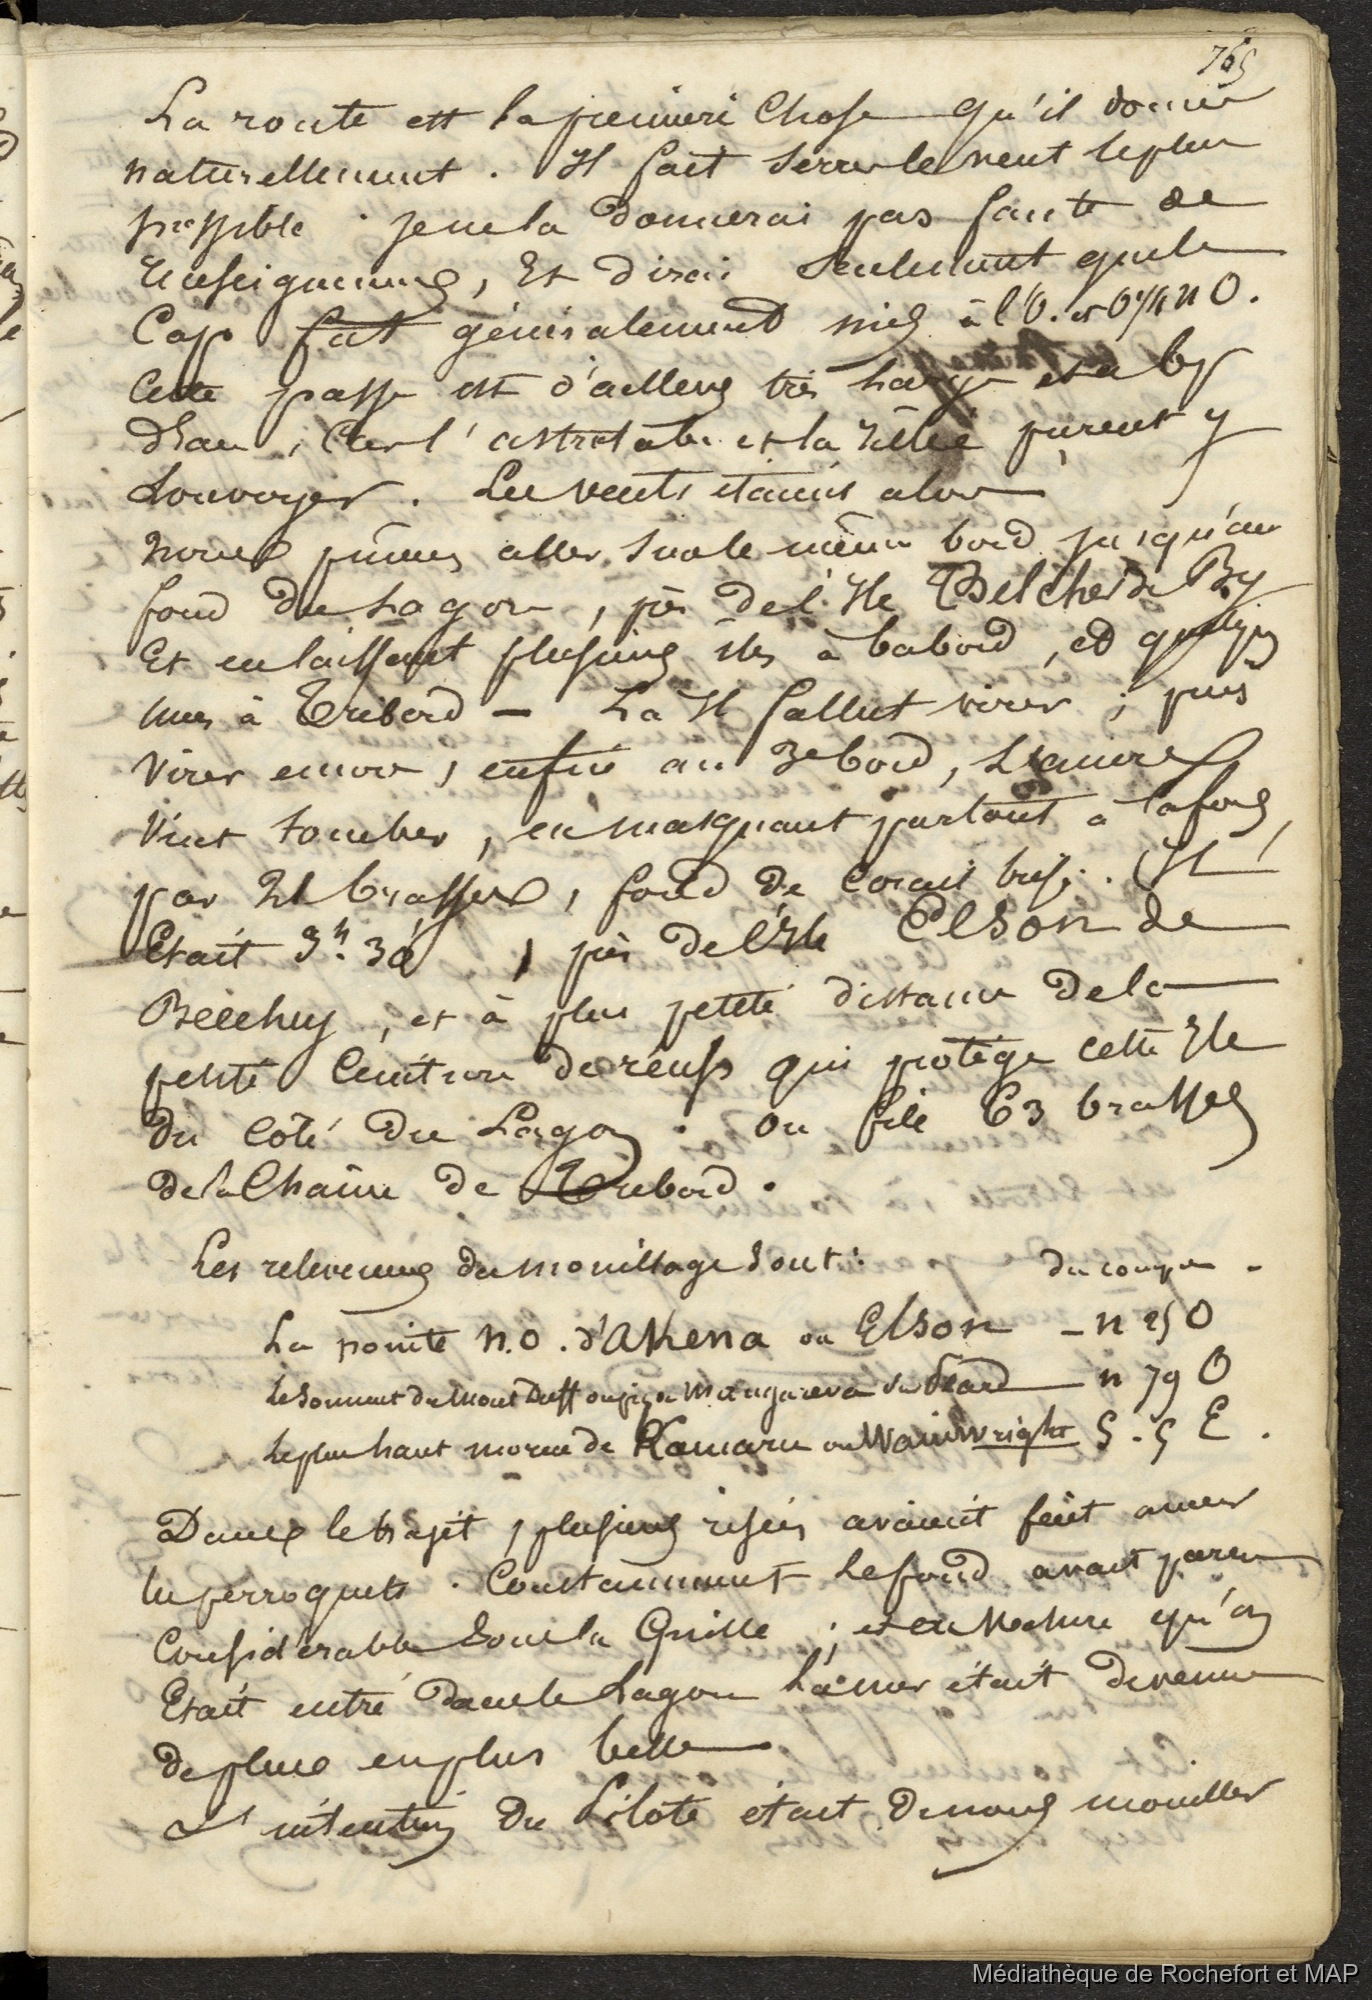 765
La route est la première chose qu'il donne
naturellement. Il fait serrer le vent le plus
possible. je ne la donnerai pas faute de
renseignemens, Et dirai seulement que le
Cap fut généralement mis à l'O. et O 1/4 N O.
Cette passe est d'ailleurs très large et a bp
d'eau, Car l'astrolabe et la Zélée purent y
Louvoyer. Les vents étaient alors
Nous pûmes aller sur le même bord jusqu'au
fond du Lagon, près de l'Ile Belcher de By
Et en laissant plusieurs îles à babord, et quelques
unes à Tribord — La Il fallut virer; puis
Virer encore, enfin au 3e bord, L'ancre
Vint tomber, en masquant partout à la fois,
par 21 brasses, fond de Corail brisé. Il
Etait 3h. 30, près de l'Ile Elson de
Beechey, et à plus petite distance de la
petite Ceinture de récifs qui protège cette Ile
du côté du Lagon. On file 63 brasses
de la Chaîne de Tribord.
Les relevemens du mouillage sont: du compas.
La pointe N.O. d'Akena ou Elson — N 25 O
Le Sommet du Mont Duff ou pic de Mangareva ou Peard N 79 O
Le plus haut morne de Kamaru ou Wainwright S. 5 E.
Dans le trajet, plusieurs risées avaient fait amener
les perroquets. Constamment Le fond avait paru
Considérable sous la Quille; et en mesure qu'on
Etait entré dans le Lagon La mer était devenue
de plus en plus belle
L'intention du Pilote était de nous mouiller
Médiathèque de Rochefort et MAP